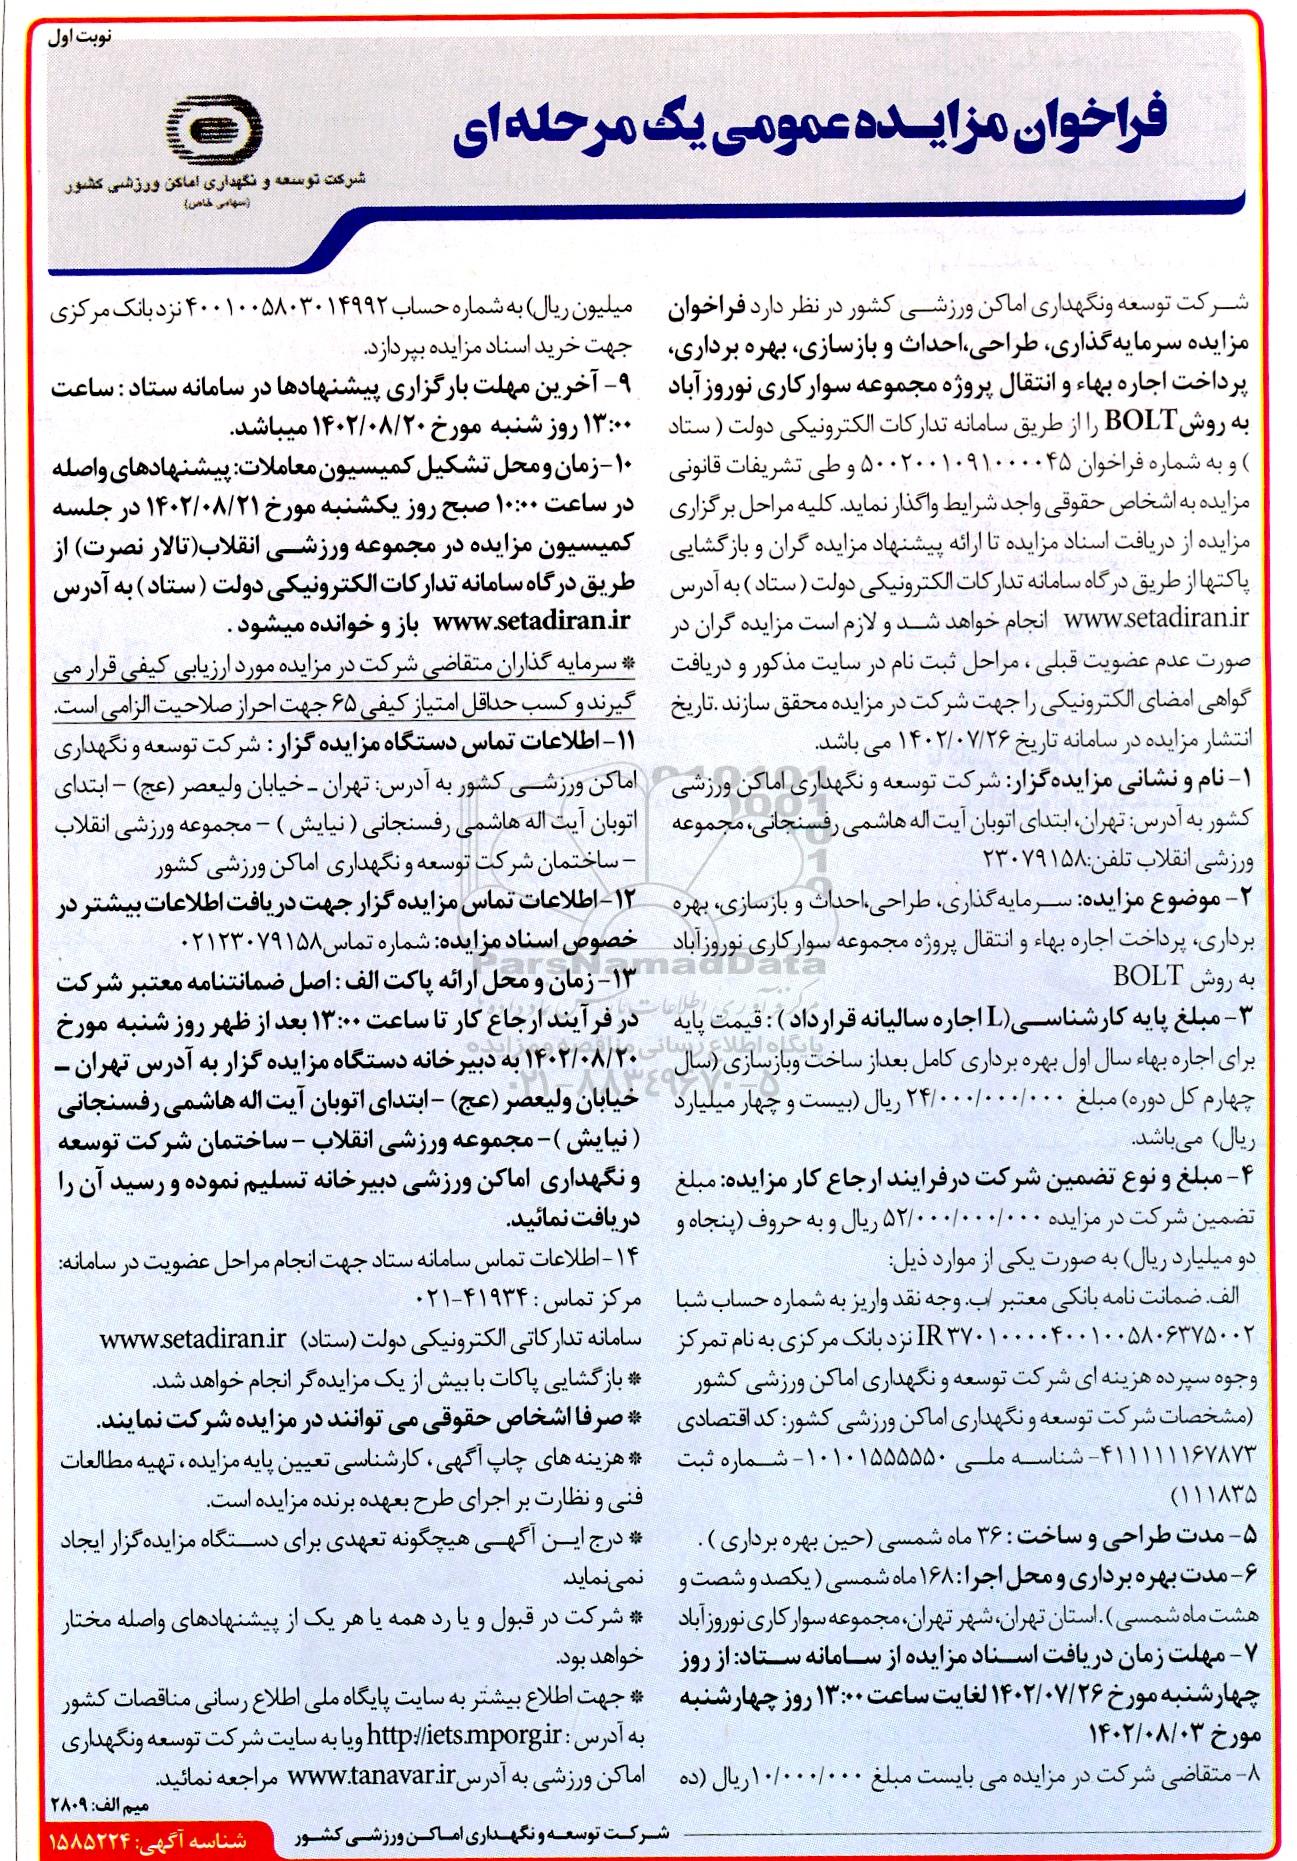 نوبت اول
فراخوان مزایده عمومی یک مرحله ای
شرکت توسعه و نگهداری اماکن ورزشی کشور
(سهامی خاص)
شرکت توسعه ونگهداری اماکن ورزشی کشور در نظر دارد فراخوان
مزایده سرمایه‌گذاری، طراحی،احداث و بازسازی، بهره برداری،
پرداخت اجاره بهاء و انتقال پروژه مجموعه سوارکاری نوروزآباد
به روش BOLT را از طریق سامانه تدارکات الکترونیکی دولت ( ستاد
) و به شماره فراخوان ۵۰۰۲۰۰۱۰۹۱۰۰۰۰۴۵ و طی تشریفات قانونی
مزایده به اشخاص حقوقی واجد شرایط واگذار نماید. کلیه مراحل برگزاری
مزایده از دریافت اسناد مزایده تا ارائه پیشنهاد مزایده گران و بازگشایی
پاکتها از طریق درگاه سامانه تدارکات الکترونیکی دولت ( ستاد ) به آدرس
www.setadiran.ir انجام خواهد شد و لازم است مزایده گران در
صورت عدم عضویت قبلی ، مراحل ثبت نام در سایت مذکور و دریافت
گواهی امضای الکترونیکی را جهت شرکت در مزایده محقق سازند .تاریخ
انتشار مزایده در سامانه تاریخ ۱۴۰۲/۰۷/۲۶ می باشد.
۱- نام و نشانی مزایده‌گزار: شرکت توسعه و نگهداری اماکن ورزشی
کشور به آدرس: تهران، ابتدای اتوبان آیت اله هاشمی رفسنجانی، مجموعه
ورزشی انقلاب تلفن:۲۳۰۷۹۱۵۸
۲- موضوع مزایده: سرمایه‌گذاری، طراحی،احداث و بازسازی، بهره
برداری، پرداخت اجاره بهاء و انتقال پروژه مجموعه سوارکاری نوروزآباد
به روش BOLT
۳- مبلغ پایه کارشناسی(L اجاره سالیانه قرارداد ) : قیمت پایه
برای اجاره بهاء سال اول بهره برداری کامل بعداز ساخت وبازسازی (سال
چهارم کل دوره) مبلغ ۲۴/۰۰۰/۰۰۰/۰۰۰ ریال (بیست و چهار میلیارد
ریال) می‌باشد.
۴- مبلغ و نوع تضمین شرکت درفرایند ارجاع کار مزایده: مبلغ
تضمین شرکت در مزایده ۵۲/۰۰۰/۰۰۰/۰۰۰ ریال و به حروف (پنجاه و
دو میلیارد ریال) به صورت یکی از موارد ذیل:
الف. ضمانت نامه بانکی معتبر /ب. وجه نقد واریز به شماره حساب شبا
IR ۳۷۰۱۰۰۰۰۴۰۰۱۰۰۵۸۰۶۳۷۵۰۰۲ نزد بانک مرکزی به نام تمرکز
وجوه سپرده هزینه ای شرکت توسعه و نگهداری اماکن ورزشی کشور
(مشخصات شرکت توسعه و نگهداری اماکن ورزشی کشور: کد اقتصادی
۴۱۱۱۱۱۱۶۷۸۷۳- شناسه ملی ۱۰۱۰۱۵۵۵۵۵۰- شماره ثبت
۱۱۱۸۳۵)
۵- مدت طراحی و ساخت : ۳۶ ماه شمسی (حین بهره برداری ) .
۶- مدت بهره برداری و محل اجرا : ۱۶۸ ماه شمسی ( یکصد و شصت و
هشت ماه شمسی ) .استان تهران، شهر تهران، مجموعه سوارکاری نوروزآباد
۷- مهلت زمان دریافت اسناد مزایده از سامانه ستاد: از روز
چهارشنبه مورخ ۱۴۰۲/۰۷/۲۶ لغایت ساعت ۱۳:۰۰ روز چهارشنبه
مورخ ۱۴۰۲/۰۸/۰۳
۸- متقاضی شرکت در مزایده می بایست مبلغ ۱۰/۰۰۰/۰۰۰ ریال (ده
میلیون ریال) به شماره حساب ۴۰۰۱۰۰۵۸۰۳۰۱۴۹۹۲ نزد بانک مرکزی
جهت خرید اسناد مزایده بپردازد.
۹- آخرین مهلت بارگزاری پیشنهادها در سامانه ستاد : ساعت
۱۳:۰۰ روز شنبه مورخ ۱۴۰۲/۰۸/۲۰ میباشد.
۱۰- زمان و محل تشکیل کمیسیون معاملات: پیشنهادهای واصله
در ساعت ۱۰:۰۰ صبح روز یکشنبه مورخ ۱۴۰۲/۰۸/۲۱ در جلسه
کمیسیون مزایده در مجموعه ورزشی انقلاب(تالار نصرت) از
طریق درگاه سامانه تدارکات الکترونیکی دولت ( ستاد ) به آدرس
www.setadiran.ir باز و خوانده میشود .
* سرمایه گذاران متقاضی شرکت در مزایده مورد ارزیابی کیفی قرار می
گیرند و کسب حداقل امتیاز کیفی ۶۵ جهت احراز صلاحیت الزامی است.
۱۱- اطلاعات تماس دستگاه مزایده گزار : شرکت توسعه و نگهداری
اماکن ورزشی کشور به آدرس: تهران – خیابان ولیعصر (عج) – ابتدای
اتوبان آیت اله هاشمی رفسنجانی ( نیایش ) – مجموعه ورزشی انقلاب
– ساختمان شرکت توسعه و نگهداری اماکن ورزشی کشور
۱۲- اطلاعات تماس مزایده گزار جهت دریافت اطلاعات بیشتر در
خصوص اسناد مزایده: شماره تماس ۰۲۱۲۳۰۷۹۱۵۸
۱۳- زمان و محل ارائه پاکت الف : اصل ضمانتنامه معتبر شرکت
در فرآیند ارجاع کار تا ساعت ۱۳:۰۰ بعد از ظهر روز شنبه مورخ
۱۴۰۲/۰۸/۲۰ به دبیرخانه دستگاه مزایده گزار به آدرس تهران –
خیابان ولیعصر (عج) – ابتدای اتوبان آیت اله هاشمی رفسنجانی
( نیایش )– مجموعه ورزشی انقلاب – ساختمان شرکت توسعه
و نگهداری اماکن ورزشی دبیرخانه تسلیم نموده و رسید آن را
دریافت نمائید.
۱۴- اطلاعات تماس سامانه ستاد جهت انجام مراحل عضویت در سامانه:
مرکز تماس : ۴۱۹۳۴-۰۲۱
سامانه تدارکاتی الکترونیکی دولت (ستاد) www.setadiran.ir
* بازگشایی پاکات با بیش از یک مزایده‌گر انجام خواهد شد.
* صرفا اشخاص حقوقی می توانند در مزایده شرکت نمایند.
* هزینه های چاپ آگهی ، کارشناسی تعیین پایه مزایده ، تهیه مطالعات
فنی و نظارت بر اجرای طرح بعهده برنده مزایده است.
* درج این آگهی هیچگونه تعهدی برای دستگاه مزایده‌گزار ایجاد
نمی‌نماید.
* شرکت در قبول و یا رد همه یا هر یک از پیشنهادهای واصله مختار
خواهد بود.
* جهت اطلاع بیشتر به سایت پایگاه ملی اطلاع رسانی مناقصات کشور
به آدرس : http://iets.mporg.ir ویا به سایت شرکت توسعه ونگهداری
اماکن ورزشی به آدرس www.tanavar.ir مراجعه نمائید.
میم الف: ۲۸۰۹
شرکت توسعه و نگهداری اماکن ورزشی کشور
شناسه آگهی: ۱۵۸۵۲۲۴
ParsNamadData
پایگاه اطلاع رسانی مناقصه و مزایده
۰۲۱-۸۸۳۴۹۶۷۰-۵